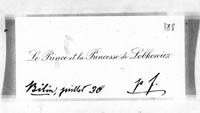 188
Le Prince et la Princesse de Lobkowicz
Bilin, juillet 30
p. f.